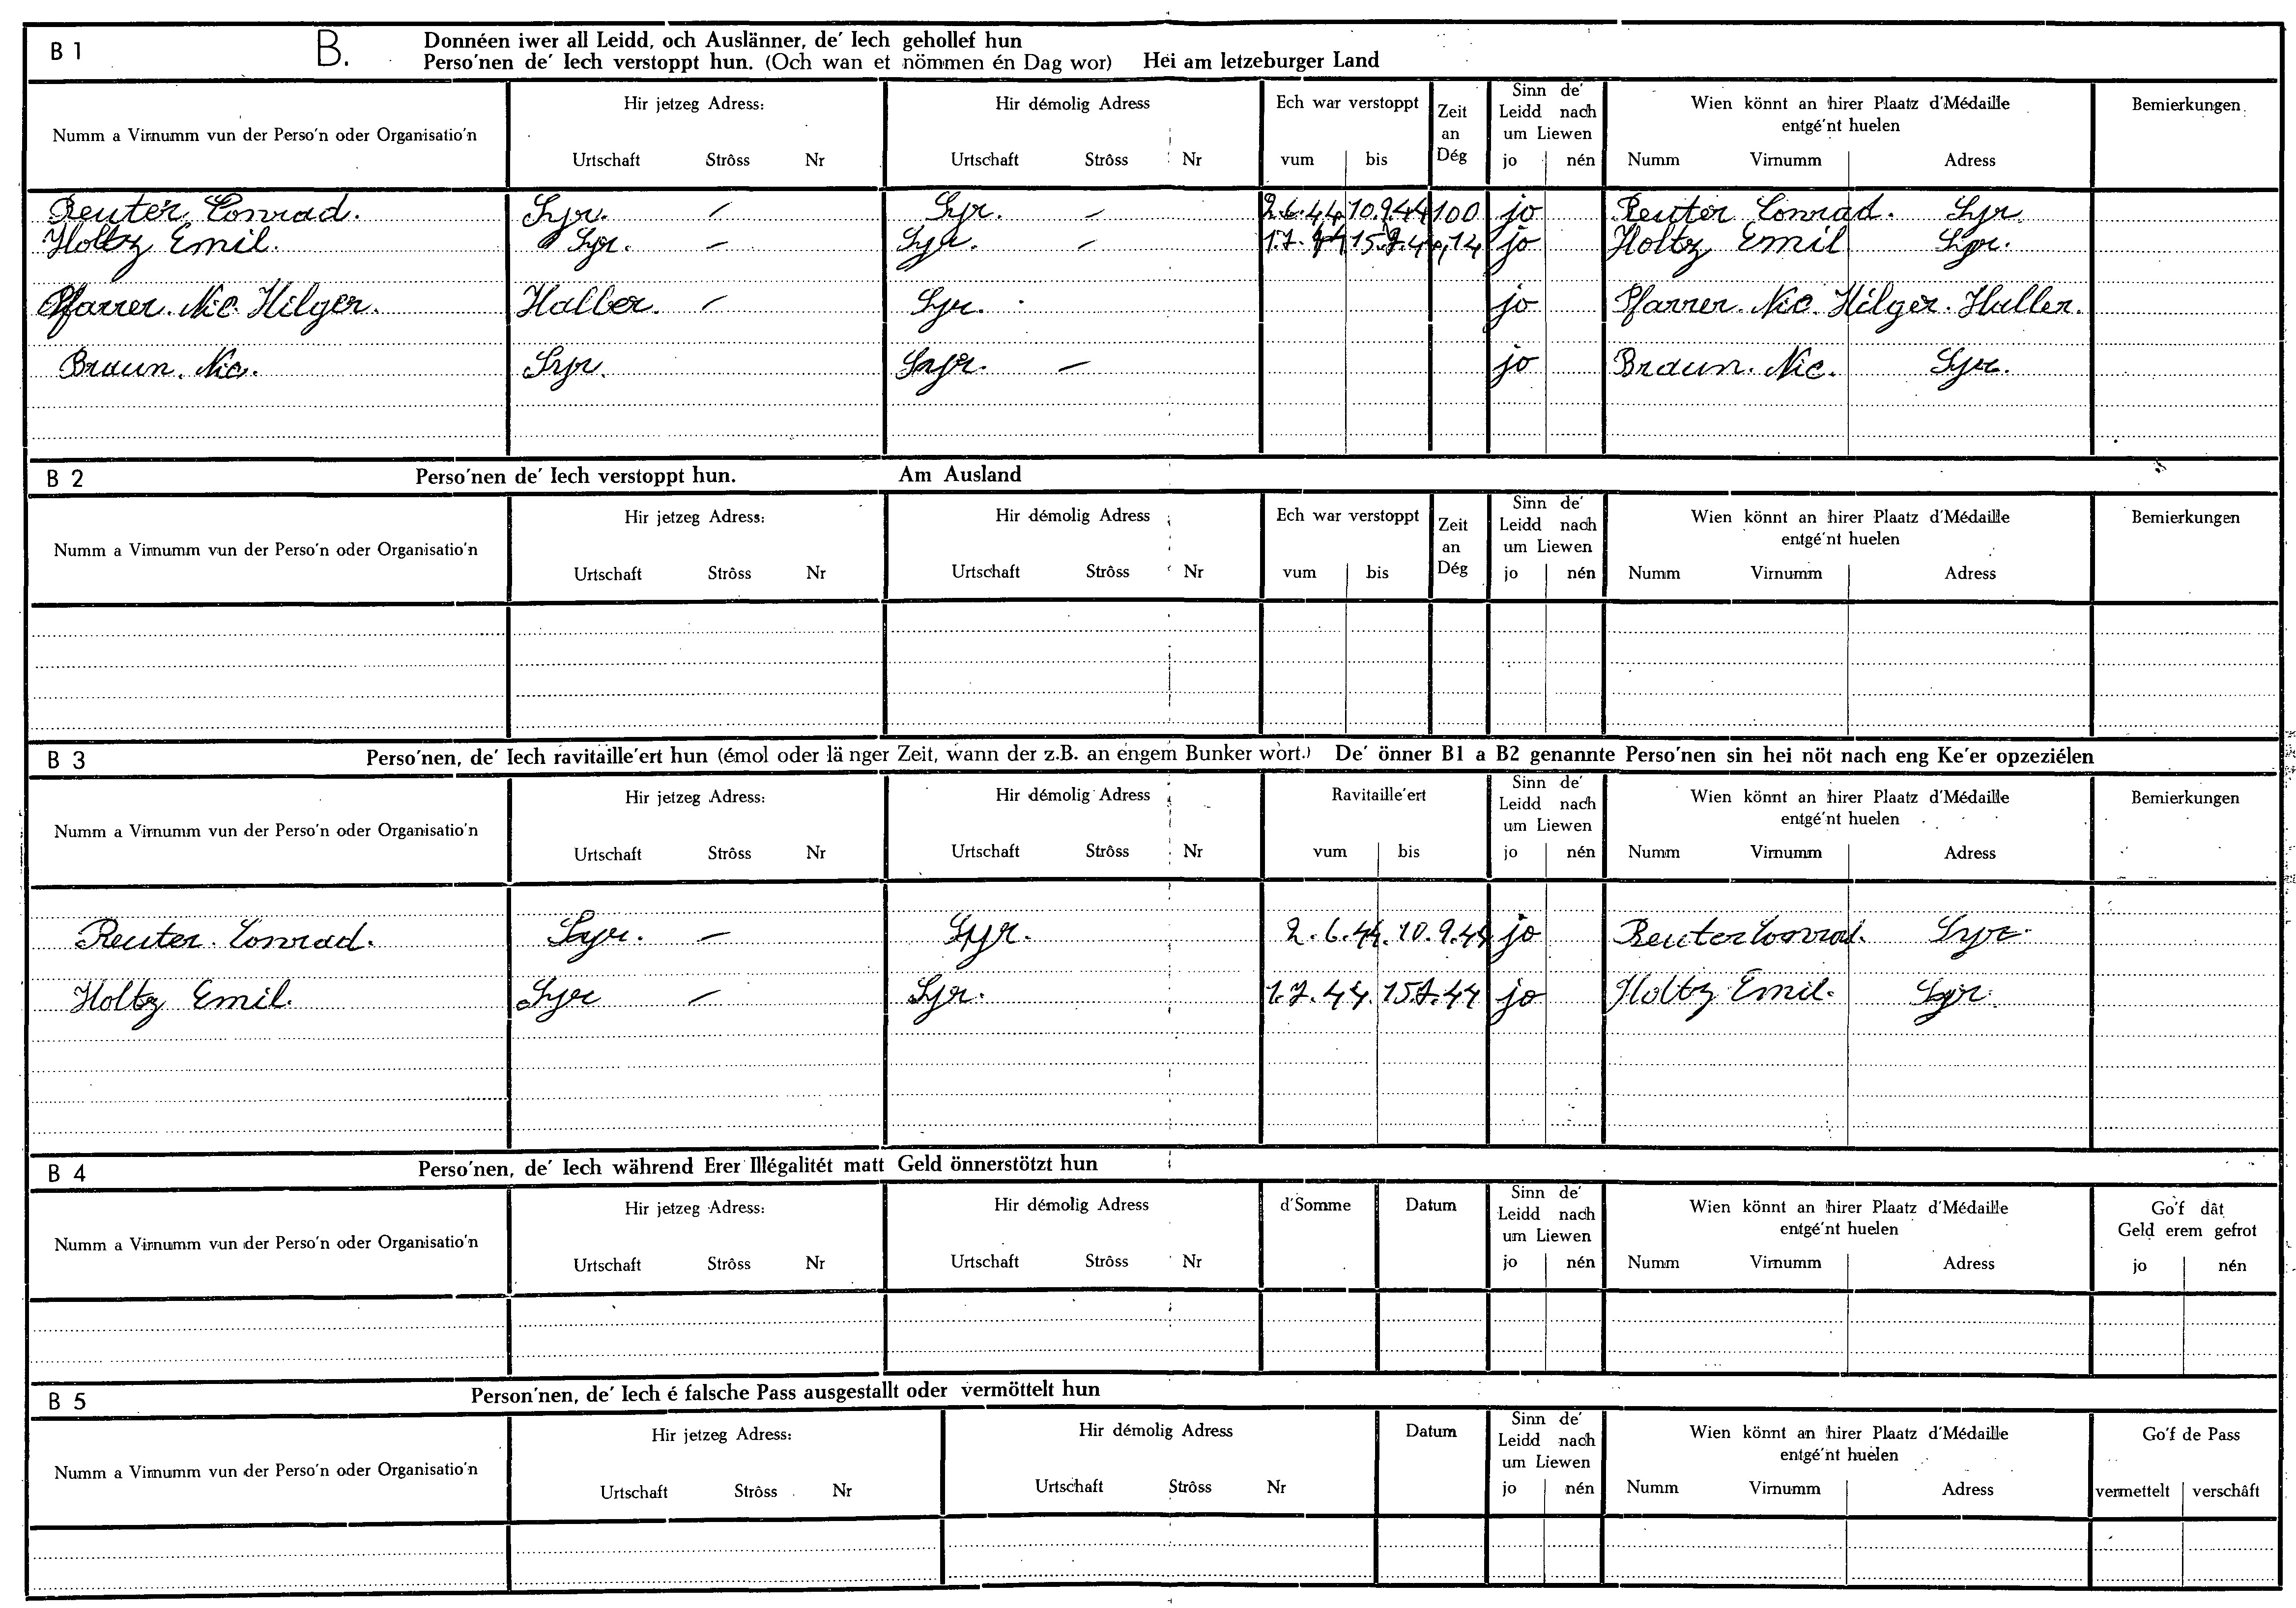 B 1 B. Donnéen iwer all Leidd, och Auslänner, de' Iech gehollef hun
Perso'nen de' Iech verstoppt hun. (Och wan et nömmen én Dag wor) Hei am letzeburger Land
Numm a Virnumm vun der Perso'n oder Organisatio'n
Hir jetzeg Adress:
Urtschaft Strôss Nr
Hir démolig Adress
Urtschaft Strôss Nr
Ech war verstoppt
vum bis
Zeit
an
Dég
Sinn de'
Leidd nach
um Liewen
jo nén
Wien könnt an hirer Plaatz d'Médaille
entgé'nt huelen
Numm Virnumm Adress
Bemierkungen
Reuter Conrad. Syr. – Syr. – 2.6.44 10.9.44 100 jo Reuter Conrad. Syr.
Holtz Emil. Syr. – Syr. – 1.7.44 15.7.44 14 jo Holtz Emil Syr.
Pfarrer. Nic. Hilger. Haller. – Syr. jo Pfarrer. Nic. Hilger. Haller.
Braun. Nic. Syr. Syr. – jo Braun. Nic. Syr.
B 2 Perso'nen de' Iech verstoppt hun. Am Ausland
Numm a Virnumm vun der Perso'n oder Organisatio'n
Hir jetzeg Adress:
Urtschaft Strôss Nr
Hir démolig Adress
Urtschaft Strôss Nr
Ech war verstoppt
vum bis
Zeit
an
Dég
Sinn de'
Leidd nach
um Liewen
jo nén
Wien könnt an hirer Plaatz d'Médaille
entgé'nt huelen
Numm Virnumm Adress
Bemierkungen
B 3 Perso'nen, de' Iech ravitaille'ert hun (émol oder länger Zeit, wann der z.B. an engem Bunker wort.) De' önner B1 a B2 genannte Perso'nen sin hei nöt nach eng Ke'er opzeziélen
Numm a Virnumm vun der Perso'n oder Organisatio'n
Hir jetzeg Adress:
Urtschaft Strôss Nr
Hir démolig Adress
Urtschaft Strôss Nr
Ravitaille'ert
vum bis
Sinn de'
Leidd nach
um Liewen
jo nén
Wien könnt an hirer Plaatz d'Médaille
entgé'nt huelen
Numm Virnumm Adress
Bemierkungen
Reuter. Conrad. Syr. – Syr. 2.6.44. 10.9.44 jo Reuter Conrad. Syr.
Holtz Emil. Syr – Syr. 1.7.44. 15.7.44 jo Holtz Emil. Syr.
B 4 Perso'nen, de' Iech während Erer Illégalitét matt Geld önnerstötzt hun
Numm a Virnumm vun der Perso'n oder Organisatio'n
Hir jetzeg Adress:
Urtschaft Strôss Nr
Hir démolig Adress
Urtschaft Strôss Nr
d'Somme
Datum
Sinn de'
Leidd nach
um Liewen
jo nén
Wien könnt an hirer Plaatz d'Médaille
entgé'nt huelen
Numm Virnumm Adress
Go'f dât
Geld erem gefrot
jo nén
B 5 Person'nen, de' Iech é falsche Pass ausgestallt oder vermöttelt hun
Numm a Virnumm vun der Perso'n oder Organisatio'n
Hir jetzeg Adress:
Urtschaft Strôss Nr
Hir démolig Adress
Urtschaft Strôss Nr
Datum
Sinn de'
Leidd nach
um Liewen
jo nén
Wien könnt an hirer Plaatz d'Médaille
entgé'nt huelen
Numm Virnumm Adress
Go'f de Pass
vermettelt verschâft